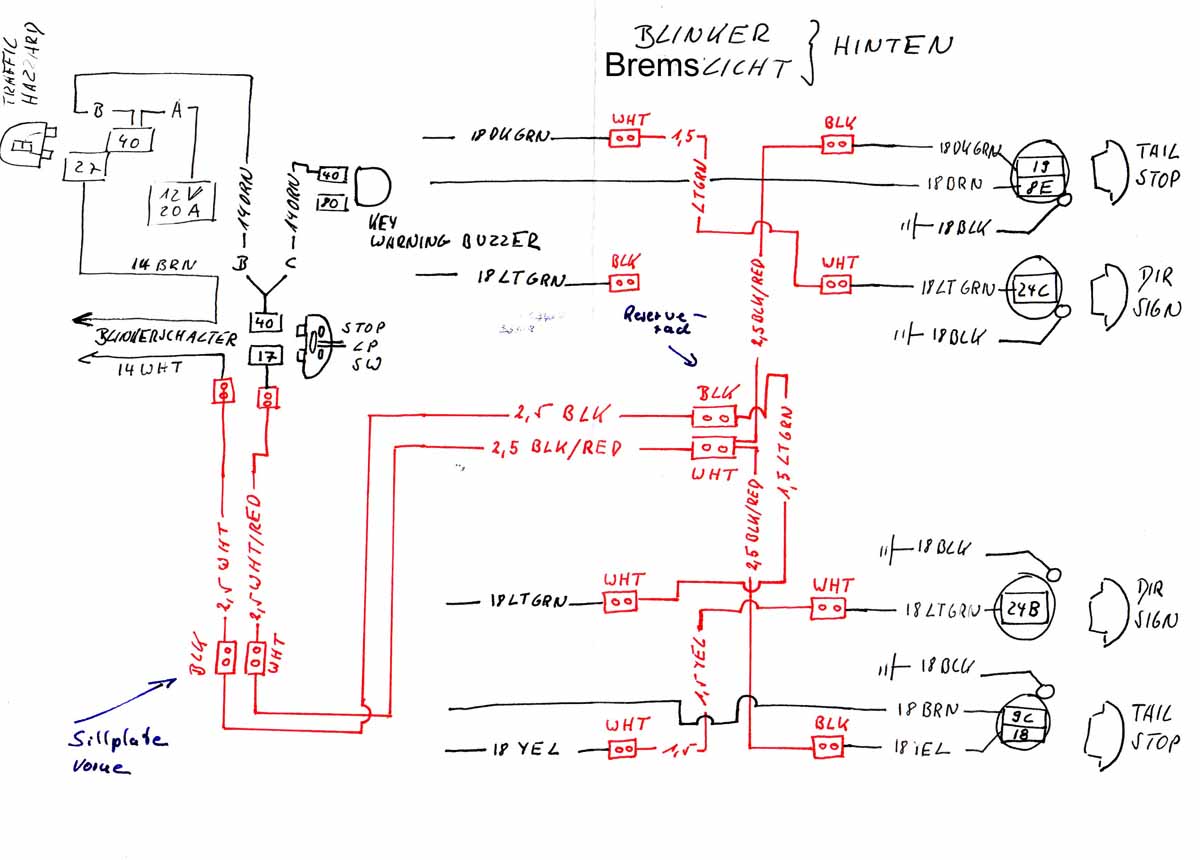 BLINKER
BremsLICHT
HINTEN
TRAFFIC
HAZZARD
B
A
40
27
12 V
20 A
14 ORN
14 ORN
40
80
KEY
WARNING BUZZER
B
C
14 BRN
BLINKERSCHALTER
14 WHT
40
17
STOP
LP
SW
18 DK GRN
WHT
1,5
LTGRN
BLK
18DKGRN
19
8E
TAIL
STOP
18 BRN
18 BLK
18 LT GRN
BLK
WHT
18 LT GRN
24C
DIR
SIGN
18 BLK
2,5 BLK/RED
Reserve-
rad
BLK
2,5 BLK
2,5 BLK/RED
WHT
1,5 LTGRN
2,5 BLK/RED
2,5 WHT
2,5 WHT/RED
BLK
WHT
Sillplate
vorne
18 BLK
18 LTGRN
WHT
WHT
18 LTGRN
24B
DIR
SIGN
1,5 YEL
18 BLK
18 BRN
9C
18
TAIL
STOP
18 YEL
WHT
1,5
BLK
18 YEL